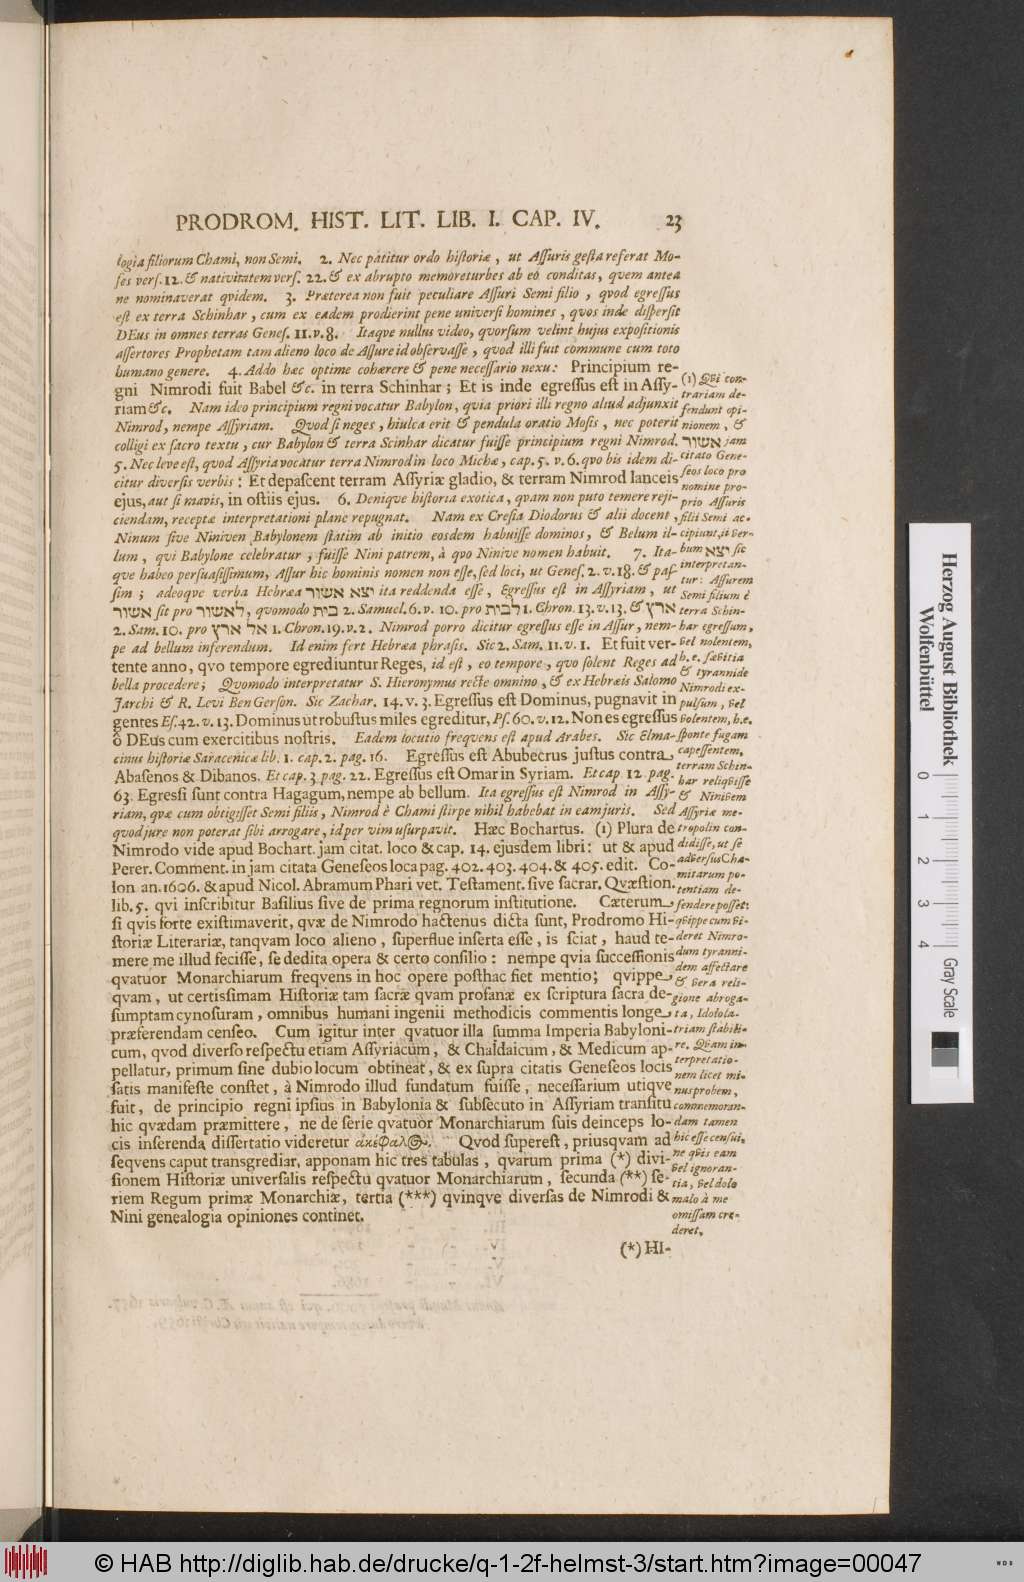 PRODROM. HIST. LIT. LIB. I. CAP. IV. 23
logia filiorum Chami, non Semi. 2. Nec patitur ordo historiæ, ut Assuris gesta referat Mo-
ses vers. 12. & nativitatem vers. 22. & ex abrupto memoret urbes ab eo conditas, qvem antea
ne nominaverat qvidem. 3. Præterea non fuit peculiare Assuri Semi filio, qvod egressus
est ex terra Schinhar, cum ex eadem prodierint pene universi homines, qvos inde dispersit
DEus in omnes terras Genes. 11. v. 8. Itaqve nullus video, qvorsum velint hujus expositionis
assertores Prophetam tam alieno loco de Assure id observasse, qvod illi fuit commune cum toto
humano genere. 4. Addo hæc optime cohærere & pene necessario nexu: Principium re-
gni Nimrodi fuit Babel &c. in terra Schinhar; Et is inde egressus est in Assy-
riam &c. Nam ideo principium regni vocatur Babylon, qvia priori illi regno aliud adjunxit
Nimrod, nempe Assyriam. Qvod si neges, hiulca erit & pendula oratio Mosis, nec poterit
colligi ex sacro textu, cur Babylon & terra Scinhar dicatur fuisse principium regni Nimrod.
5. Nec leve est, qvod Assyria vocatur terra Nimrod in loco Michæ, cap. 5. v. 6. qvo bis idem di-
citur diversis verbis: Et depascent terram Assyriæ gladio, & terram Nimrod lanceis
ejus, aut si mavis, in ostiis ejus. 6. Deniqve historia exotica, qvam non puto temere reji-
ciendam, receptæ interpretationi plane repugnat. Nam ex Cresia Diodorus & alii docent,
Ninum sive Niniven Babylonem statim ab initio eosdem habuisse dominos, & Belum il-
lum, qvi Babylone celebratur, fuisse Nini patrem, à qvo Ninive nomen habuit. 7. Ita-
qve habeo persuasissimum, Assur hic hominis nomen non esse, sed loci, ut Genes. 2. v. 18. & pas-
sim; adeoqve verba Hebræa יצא אשור ita reddenda esse, Egressus est in Assyriam, ut
אשור sit pro לאשור, qvomodo בית 2. Samuel. 6. v. 10. pro לבית 1. Chron. 13. v. 13. & ארץ
2. Sam. 10. pro אל ארץ 1. Chron. 19. v. 2. Nimrod porro dicitur egressus esse in Assur, nem-
pe ad bellum inferendum. Id enim fert Hebræa phrasis. Sic 2. Sam. 11. v. 1. Et fuit ver-
tente anno, qvo tempore egrediuntur Reges, id est, eo tempore, qvo solent Reges ad
bella procedere; Qvomodo interpretatur S. Hieronymus recte omnino, & ex Hebræis Salomo
Jarchi & R. Levi Ben Gerson. Sic Zachar. 14. v. 3. Egressus est Dominus, pugnavit in
gentes Es. 42. v. 13. Dominus ut robustus miles egreditur, Ps. 60. v. 12. Non es egressus
ô DEus cum exercitibus nostris. Eadem locutio freqvens est apud Arabes. Sic Elma-
cinus historiæ Saracenicæ lib. 1. cap. 2. pag. 16. Egressus est Abubecrus justus contra
Abasenos & Dibanos. Et cap. 3. pag. 22. Egressus est Omar in Syriam. Et cap 12. pag.
63. Egressi sunt contra Hagagum, nempe ab bellum. Ita egressus est Nimrod in Assy-
riam, qvæ cum obtigisset Semi filiis, Nimrod è Chami stirpe nihil habebat in eam juris. Sed
qvod jure non poterat sibi arrogare, id per vim usurpavit. Hæc Bochartus. (1) Plura de
Nimrodo vide apud Bochart. jam citat. loco & cap. 14. ejusdem libri: ut & apud
Perer. Comment. in jam citata Geneseos loca pag. 402. 403. 404. & 405. edit. Co-
lon an. 1606. & apud Nicol. Abramum Phari vet. Testament. sive sacrar. Qvæstion.
lib. 5. qvi inscribitur Basilius sive de prima regnorum institutione. Cæterum
si qvis forte existimaverit, qvæ de Nimrodo hactenus dicta sunt, Prodromo Hi-
storiæ Literariæ, tanqvam loco alieno, superflue inserta esse, is sciat, haud te-
mere me illud fecisse, se dedita opera & certo consilio: nempe qvia successionis
qvatuor Monarchiarum freqvens in hoc opere posthac fiet mentio; qvippe
qvam, ut certissimam Historiæ tam sacræ qvam profanæ ex scriptura sacra de-
sumptam cynosuram, omnibus humani ingenii methodicis commentis longe
præferendam censeo. Cum igitur inter qvatuor illa summa Imperia Babyloni-
cum, qvod diverso respectu etiam Assyriacum, & Chaldaicum, & Medicum ap-
pellatur, primum sine dubio locum obtineat, & ex supra citatis Geneseos locis
satis manifeste constet, à Nimrodo illud fundatum fuisse, necessarium utiqve
fuit, de principio regni ipsius in Babylonia & subsecuto in Assyriam transitu
hic qvædam præmittere, ne de serie qvatuor Monarchiarum suis deinceps lo-
cis inserenda dissertatio videretur ἀκέφαλος. Qvod superest, priusqvam ad
seqvens caput transgrediar, apponam hic tres tabulas, qvarum prima (*) divi-
sionem Historiæ universalis respectu qvatuor Monarchiarum, secunda (**) se-
riem Regum primæ Monarchiæ, tertia (***) qvinqve diversas de Nimrodi &
Nini genealogia opiniones continet.
(1) Qvi con-
trariam de-
fendunt opi-
nionem, &
אשור jam
citato Gene-
seos loco pro
nomine pro-
prio Assuris
filii Semi ac-
cipiunt, ii ver-
bum יצא sic
interpretan-
tur: Assurem
Semi filium è
terra Schin-
har egressum,
vel nolentem,
h. e. sævitia
& tyrannide
Nimrodi ex-
pulsum, vel
volentem, h. e.
sponte fugam
capessentem,
terram Schin-
har reliqvisse
& Ninivem
Assyriæ me-
tropolin con-
didisse, ut se
adversus Cha-
mitarum po-
tentiam de-
fendere posset:
qvippe cum vi-
deret Nimro-
dum tyranni-
dem affectare
& vera reli-
gione abroga-
ta, Idolola-
triam stabili-
re. Qvam in-
terpretatio-
nem licet mi-
nus probem,
commemoran-
dam tamen
hic esse censui,
ne qvis eam
vel ignoran-
tia, vel dolo
malo à me
omissam cre-
deret.
(*) HI-
Herzog August Bibliothek
Wolfenbüttel
0 1 2 3 4
Gray Scale
© HAB http://diglib.hab.de/drucke/q-1-2f-helmst-3/start.htm?image=00047